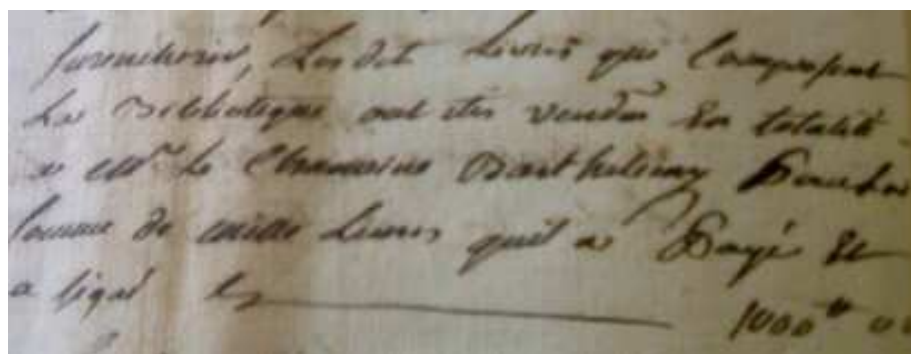 Les dit Livres qui Composent
La Biblioteque ont étés vendus En totalité
a Mr. Le Chanoine Barthelemy Pour La
Somme de mille Livres quil a Payé Et
a signé 1000 tt